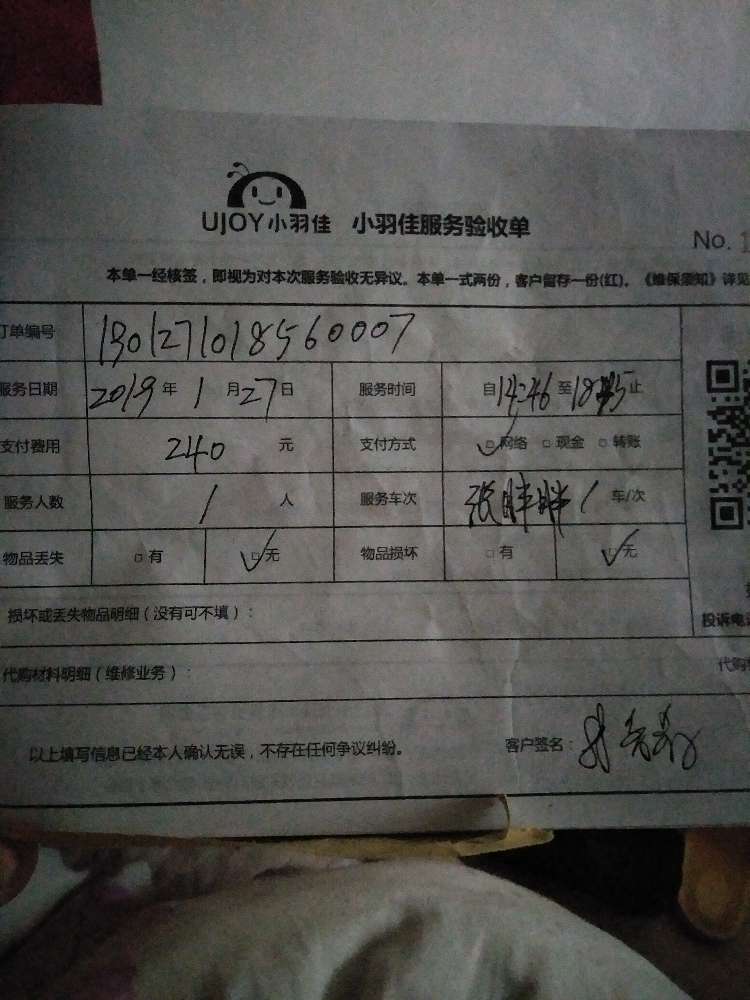 UJOY小羽佳 小羽佳服务验收单
No. 1
本单一经核签，即视为对本次服务验收无异议。本单一式两份，客户留存一份(红)。《维保须知》详见
订单编号 1901271018560007
服务日期 2019年1月27日 服务时间 自14:46至18:45止
支付费用 240 元 支付方式 ☑网络 □现金 □转账
服务人数 1 人 服务车次 张胖胖 1 车/次
物品丢失 □有 ☑无 物品损坏 □有 ☑无
损坏或丢失物品明细（没有可不填）：
投诉电话
代购材料明细（维修业务）： 代购
以上填写信息已经本人确认无误，不存在任何争议纠纷。 客户签名：